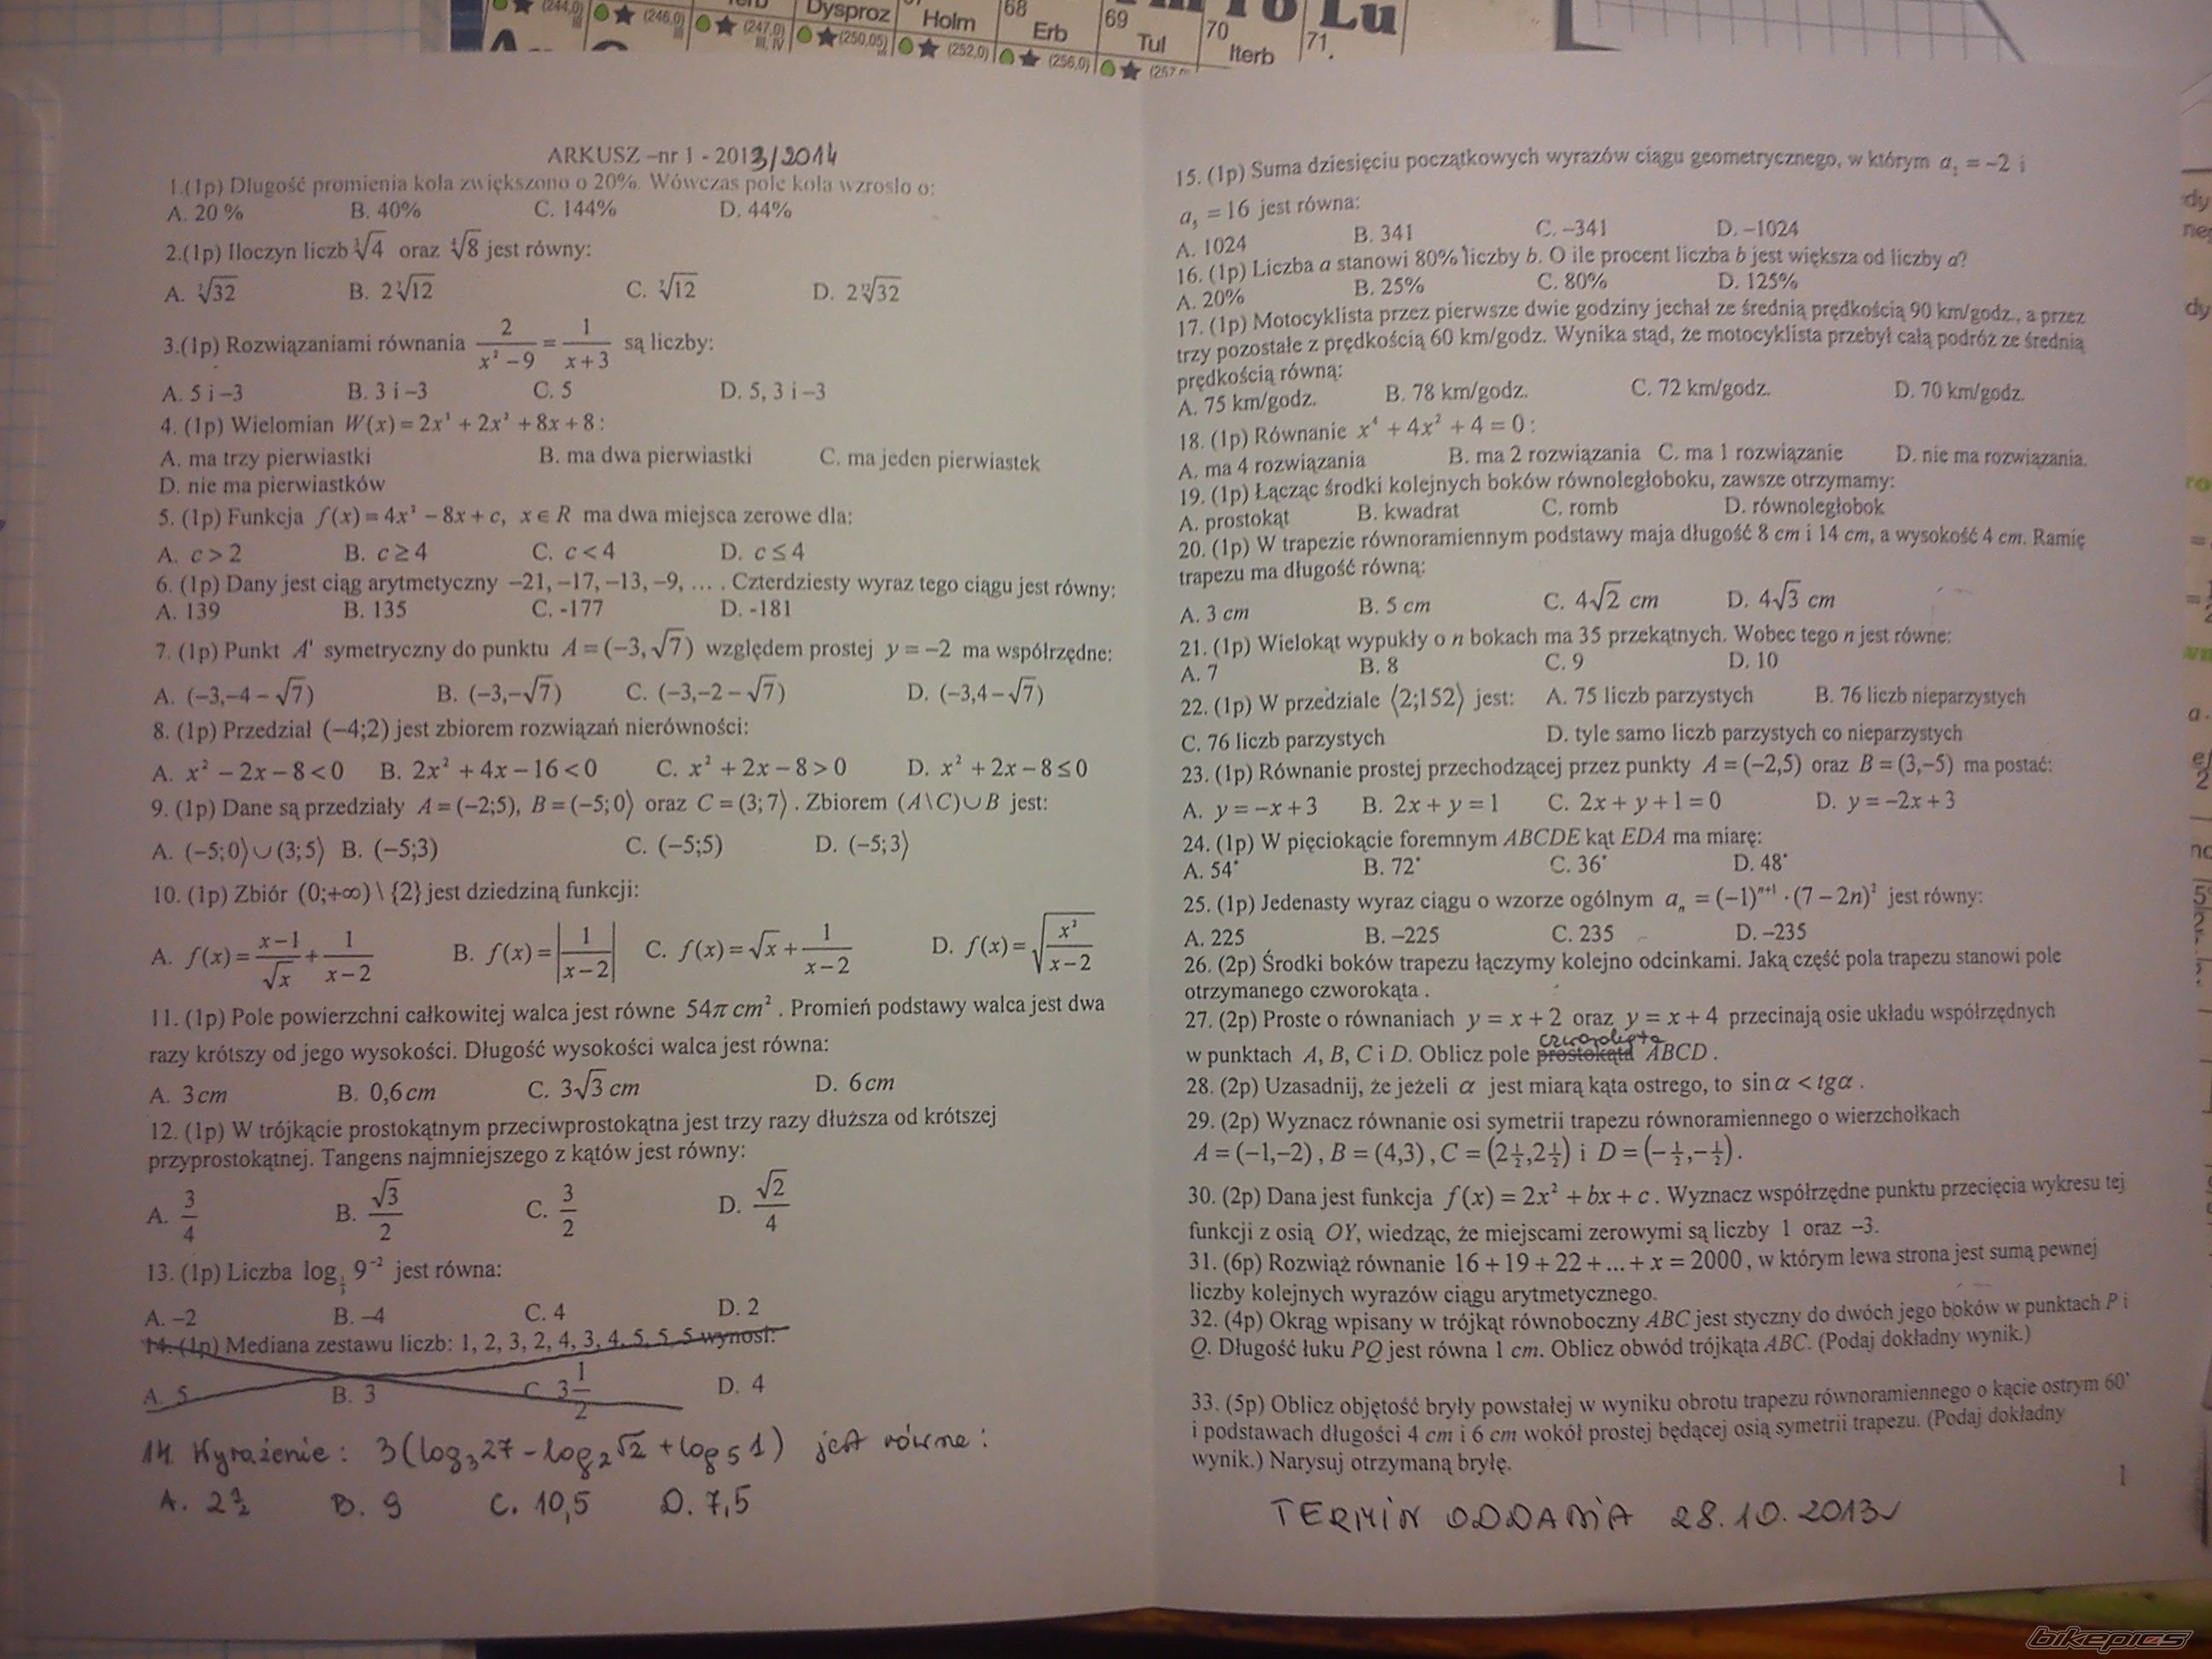 (244,0) (246,0) (247,0) (250,05) (252,0) (256,0)
III III III, IV III
Dysproz Holm 68 Erb 69 Tul 70 Iterb 71 Lu
ARKUSZ –nr 1 - 2013/2014
1.(1p) Długość promienia koła zwiększono o 20%. Wówczas pole koła wzrosło o:
A. 20 % B. 40% C. 144% D. 44%
2.(1p) Iloczyn liczb ∛4 oraz ∜8 jest równy:
A. √32 B. 2√12 C. √12 D. 2 ¹²√32
3.(1p) Rozwiązaniami równania 2/(x² − 9) = 1/(x + 3) są liczby:
A. 5 i –3 B. 3 i –3 C. 5 D. 5, 3 i –3
4. (1p) Wielomian W(x) = 2x³ + 2x² + 8x + 8 :
A. ma trzy pierwiastki B. ma dwa pierwiastki C. ma jeden pierwiastek
D. nie ma pierwiastków
5. (1p) Funkcja f(x) = 4x² − 8x + c, x ∈ R ma dwa miejsca zerowe dla:
A. c > 2 B. c ≥ 4 C. c < 4 D. c ≤ 4
6. (1p) Dany jest ciąg arytmetyczny –21, –17, –13, –9, ... . Czterdziesty wyraz tego ciągu jest równy:
A. 139 B. 135 C. -177 D. -181
7. (1p) Punkt A' symetryczny do punktu A = (−3, √7) względem prostej y = −2 ma współrzędne:
A. (−3,−4 − √7) B. (−3,−√7) C. (−3,−2 − √7) D. (−3,4 − √7)
8. (1p) Przedział (−4;2) jest zbiorem rozwiązań nierówności:
A. x² − 2x − 8 < 0 B. 2x² + 4x − 16 < 0 C. x² + 2x − 8 > 0 D. x² + 2x − 8 ≤ 0
9. (1p) Dane są przedziały A = (−2;5), B = (−5; 0⟩ oraz C = (3; 7⟩ . Zbiorem (A \ C) ∪ B jest:
A. (−5; 0⟩ ∪ (3; 5⟩ B. (−5;3) C. (−5;5) D. (−5; 3⟩
10. (1p) Zbiór (0;+∞) \ {2} jest dziedziną funkcji:
A. f(x) = (x − 1)/√x + 1/(x − 2) B. f(x) = |1/(x − 2)| C. f(x) = √x + 1/(x − 2) D. f(x) = √(x³/(x − 2))
11. (1p) Pole powierzchni całkowitej walca jest równe 54π cm² . Promień podstawy walca jest dwa
razy krótszy od jego wysokości. Długość wysokości walca jest równa:
A. 3 cm B. 0,6 cm C. 3√3 cm D. 6 cm
12. (1p) W trójkącie prostokątnym przeciwprostokątna jest trzy razy dłuższa od krótszej
przyprostokątnej. Tangens najmniejszego z kątów jest równy:
A. 3/4 B. √3/2 C. 3/2 D. √2/4
13. (1p) Liczba log 9⁻² jest równa:
A. –2 B. –4 C. 4 D. 2
14. (1p) Mediana zestawu liczb: 1, 2, 3, 2, 4, 3, 4, 5, 5, 5 wynosi:
A. 5 B. 3 C. 3 1/2 D. 4
14. Wyrażenie : 3(log₃27 − log₂√2 + log₅1) jest równe :
A. 2 ½ B. 9 C. 10,5 D. 7,5
15. (1p) Suma dziesięciu początkowych wyrazów ciągu geometrycznego, w którym a = −2 i
a = 16 jest równa:
A. 1024 B. 341 C. –341 D. –1024
16. (1p) Liczba a stanowi 80% liczby b. O ile procent liczba b jest większa od liczby a?
A. 20% B. 25% C. 80% D. 125%
17. (1p) Motocyklista przez pierwsze dwie godziny jechał ze średnią prędkością 90 km/godz., a przez
trzy pozostałe z prędkością 60 km/godz. Wynika stąd, że motocyklista przebył całą podróż ze średnią
prędkością równą:
A. 75 km/godz. B. 78 km/godz. C. 72 km/godz. D. 70 km/godz.
18. (1p) Równanie x⁴ + 4x² + 4 = 0 :
A. ma 4 rozwiązania B. ma 2 rozwiązania C. ma 1 rozwiązanie D. nie ma rozwiązania.
19. (1p) Łącząc środki kolejnych boków równoległoboku, zawsze otrzymamy:
A. prostokąt B. kwadrat C. romb D. równoległobok
20. (1p) W trapezie równoramiennym podstawy maja długość 8 cm i 14 cm, a wysokość 4 cm. Ramię
trapezu ma długość równą:
A. 3 cm B. 5 cm C. 4√2 cm D. 4√3 cm
21. (1p) Wielokąt wypukły o n bokach ma 35 przekątnych. Wobec tego n jest równe:
A. 7 B. 8 C. 9 D. 10
22. (1p) W przedziale ⟨2;152⟩ jest: A. 75 liczb parzystych B. 76 liczb nieparzystych
C. 76 liczb parzystych D. tyle samo liczb parzystych co nieparzystych
23. (1p) Równanie prostej przechodzącej przez punkty A = (−2,5) oraz B = (3,−5) ma postać:
A. y = −x + 3 B. 2x + y = 1 C. 2x + y + 1 = 0 D. y = −2x + 3
24. (1p) W pięciokącie foremnym ABCDE kąt EDA ma miarę:
A. 54° B. 72° C. 36° D. 48°
25. (1p) Jedenasty wyraz ciągu o wzorze ogólnym aₙ = (−1)ⁿ⁺¹ · (7 − 2n)² jest równy:
A. 225 B. –225 C. 235 D. –235
26. (2p) Środki boków trapezu łączymy kolejno odcinkami. Jaką część pola trapezu stanowi pole
otrzymanego czworokąta .
27. (2p) Proste o równaniach y = x + 2 oraz y = x + 4 przecinają osie układu współrzędnych
czworokąta
w punktach A, B, C i D. Oblicz pole prostokąta ABCD .
28. (2p) Uzasadnij, że jeżeli α jest miarą kąta ostrego, to sin α < tgα .
29. (2p) Wyznacz równanie osi symetrii trapezu równoramiennego o wierzchołkach
A = (−1,−2) , B = (4,3) , C = (2½,2½) i D = (−½,−½).
30. (2p) Dana jest funkcja f(x) = 2x² + bx + c . Wyznacz współrzędne punktu przecięcia wykresu tej
funkcji z osią OY, wiedząc, że miejscami zerowymi są liczby 1 oraz –3.
31. (6p) Rozwiąż równanie 16 + 19 + 22 + ... + x = 2000 , w którym lewa strona jest sumą pewnej
liczby kolejnych wyrazów ciągu arytmetycznego.
32. (4p) Okrąg wpisany w trójkąt równoboczny ABC jest styczny do dwóch jego boków w punktach P i
Q. Długość łuku PQ jest równa 1 cm. Oblicz obwód trójkąta ABC. (Podaj dokładny wynik.)
33. (5p) Oblicz objętość bryły powstałej w wyniku obrotu trapezu równoramiennego o kącie ostrym 60°
i podstawach długości 4 cm i 6 cm wokół prostej będącej osią symetrii trapezu. (Podaj dokładny
wynik.) Narysuj otrzymaną bryłę.
1
TERMIN ODDANIA 28.10.2013r
bikepics